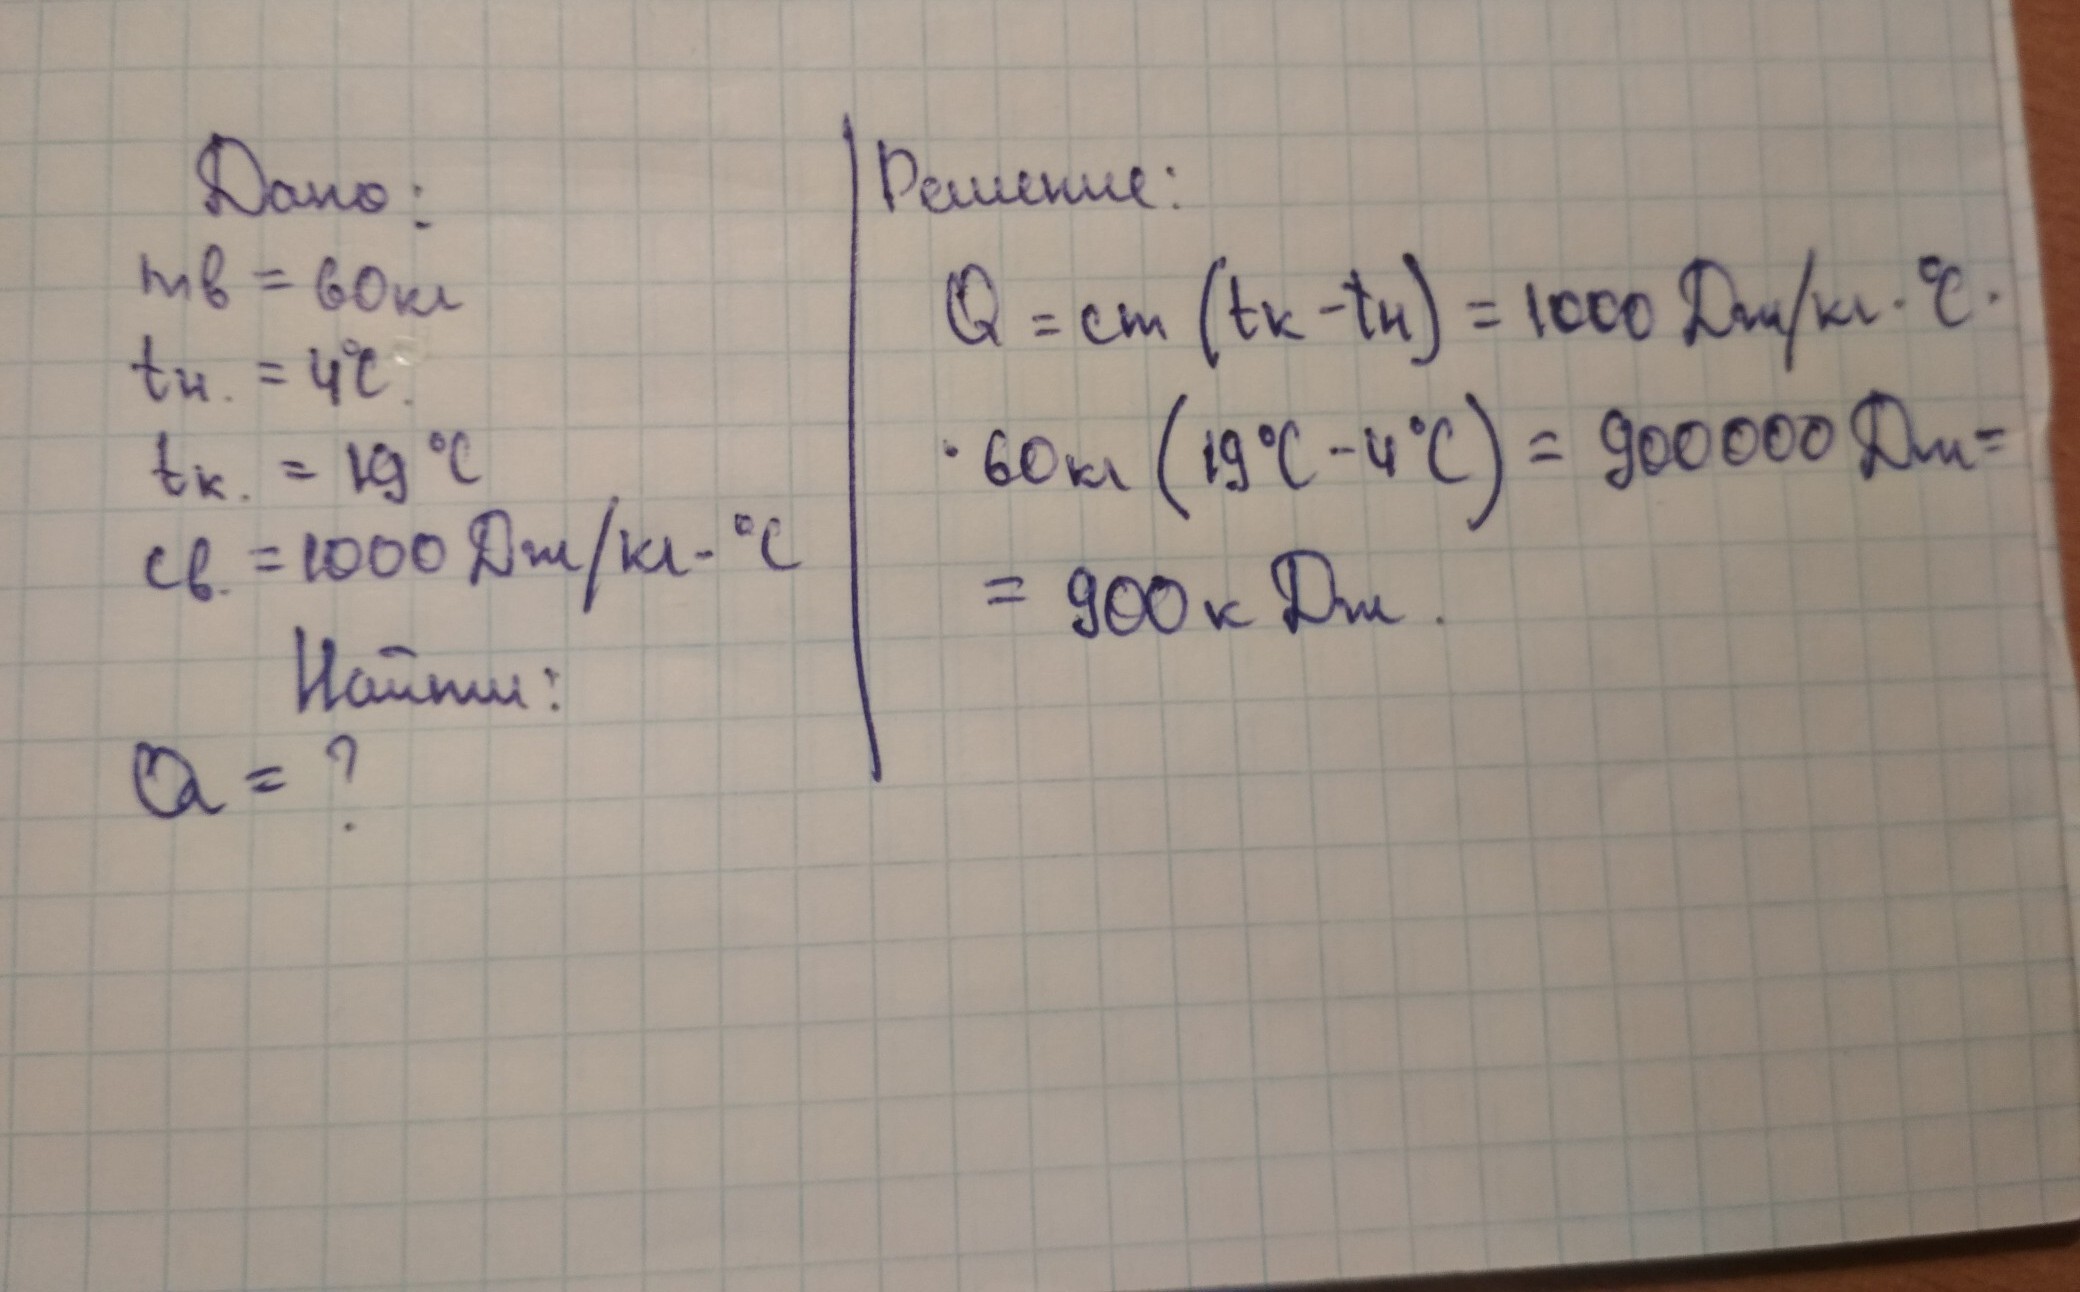 Дано:
mв = 60кг
tн. = 4°С.
tк. = 19°С
св. = 1000 Дж/кг·°С
Найти:
Q = ?
Решение:
Q = cm (tк - tн) = 1000 Дж/кг·°С·
·60кг (19°С - 4°С) = 900000 Дж =
= 900 к Дж.